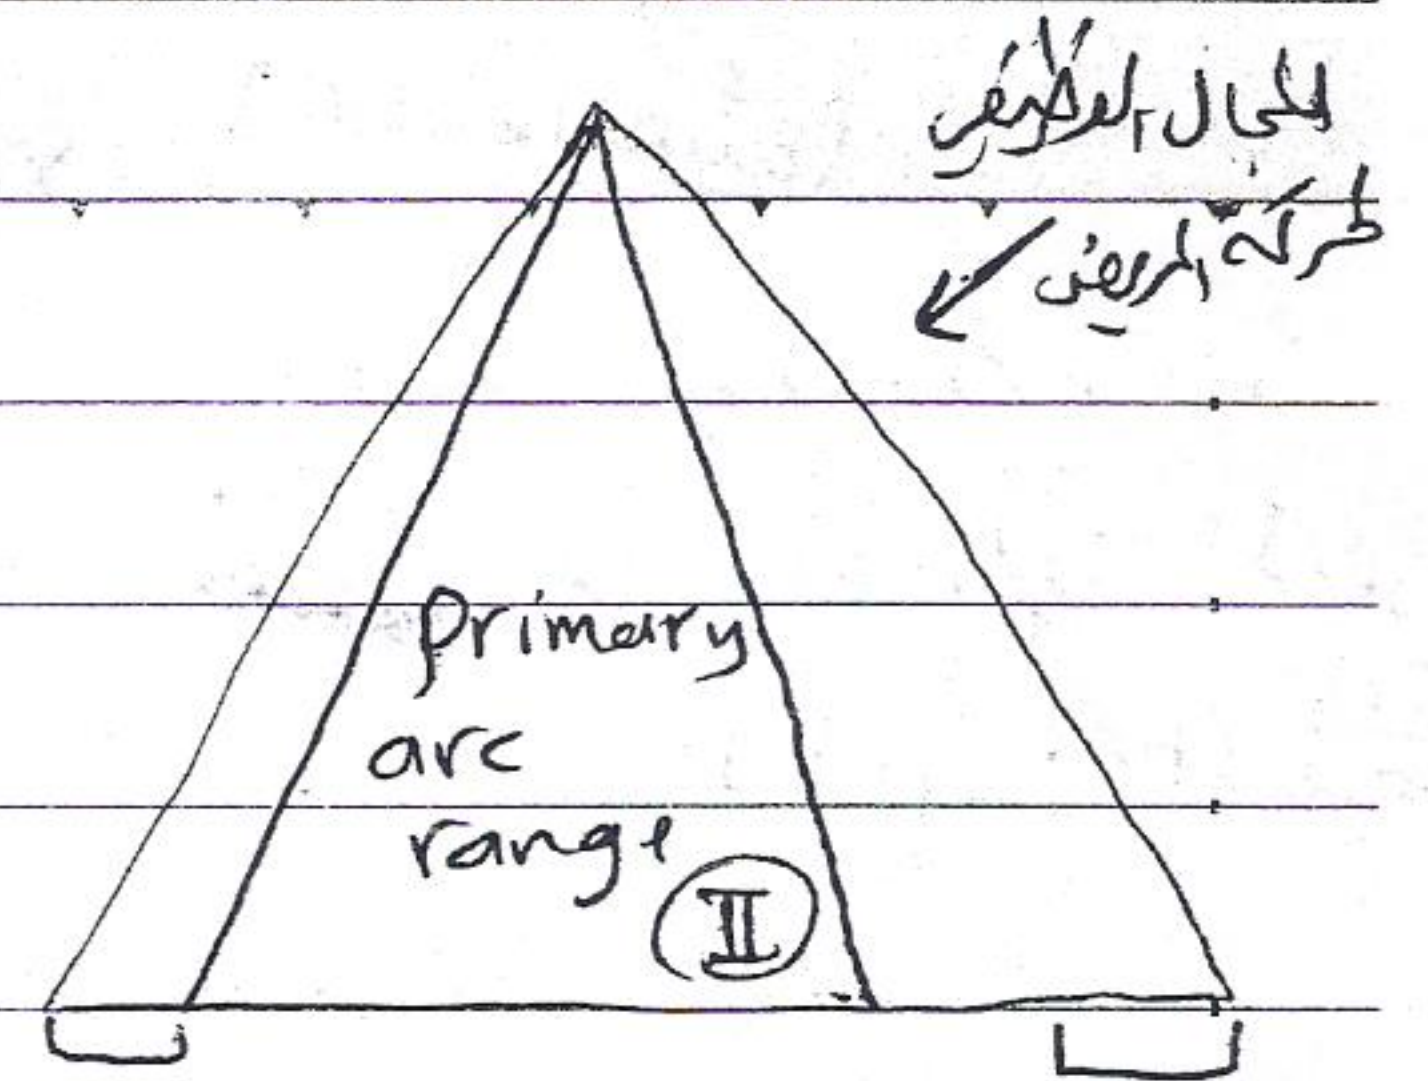 المجال الوظيفي
لحركة المريض
primary
arc
range
II